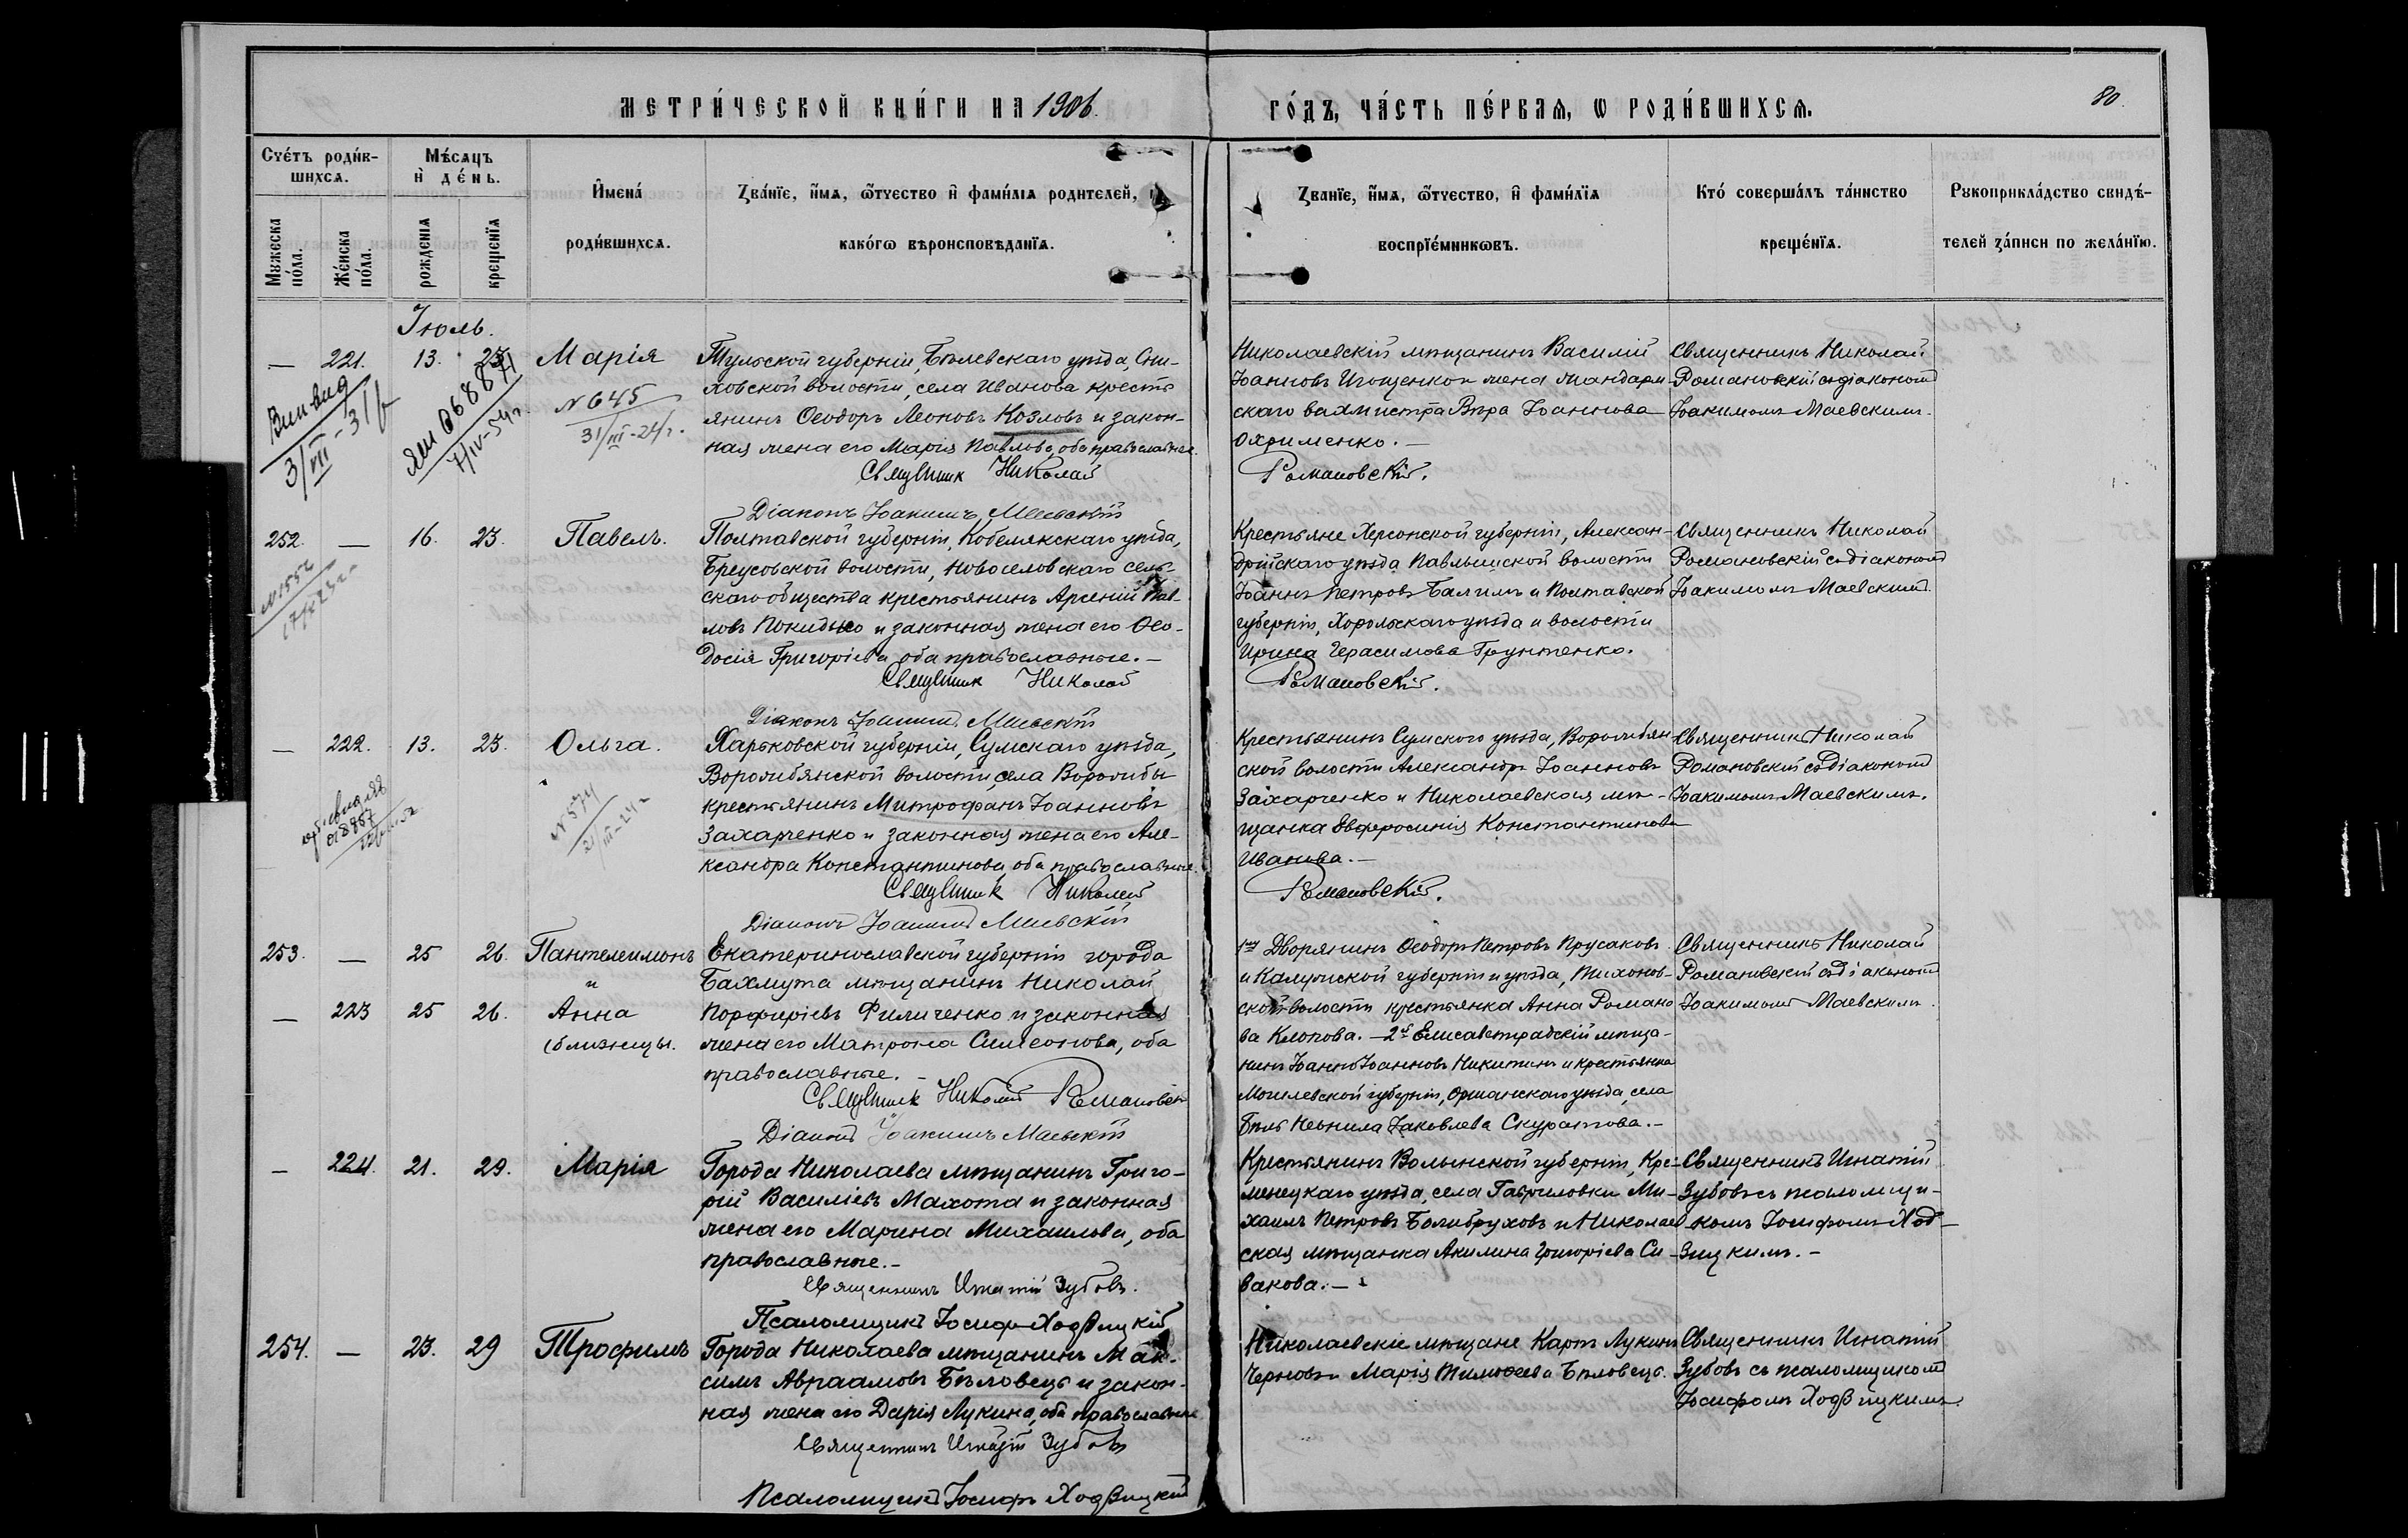 МЕТРИ́ЧЕСКОЙ КНИ́ГИ НА 1906.
ГО́ДЪ, ЧА́СТЬ ПЕ́РВАЯ, Ѡ РОДИ́ВШИХСЯ.
80.
Сче́тъ роди́в-
шихся.
Мѣ́сяцъ
и де́нь.
Мужеска
по́ла.
Же́нска
по́ла.
рожденія
крещенїя
Имена́
роди́вшихся.
Зва́нїе, и́мя, ѻ́тчество и фами́лїя родителей, и
како́гѡ вѣроисповѣданїя.
Званїе, и́мя, ѻ́тчество, и фами́лїя
воспрїе́мникѡвъ.
Кто́ соверша́лъ та́инство
креще́нїя.
Рукоприкла́дство свидѣ́-
телей за́писи по жела́нїю.
Іюль.
— 221. 13. 23. Марія
№ 645
31/III-24 г.
Тульской губерніи, Бѣлевскаго уѣзда,
ховской волости, села Иванова кресть-
янинъ Ѳеодоръ Леоновъ Козловъ и закон-
ная жена его Марія Павлова, оба православные.
Священник Николай
Діаконъ Іоакимъ Маевскій
Николаевскій мѣщанинъ Василій
Іоанновъ Игощенко и жена жандарм-
скаго вахмистра Вѣра Іоаннова
Охрименко.—
Романовскій.
Священникъ Николай
Романовскій съ діакономъ
Іоакимомъ Маевскимъ.
252. — 16. 23. Павелъ.
Полтавской губерніи, Кобелякскаго уѣзда,
Бреусовской волости, Новоселовскаго сель-
скаго общества крестьянинъ Арсеній Пав-
ловъ Покидько и законная жена его Ѳео-
досія Григоріева, оба православные.—
Священник Николай
Діаконъ Іоакимъ Маевскій
Крестьяне Херсонской губерніи, Алексан-
дрійскаго уѣзда Павлышской волости
Іоаннъ Петровъ Балимъ и Полтавской
губерніи, Хорольскаго уѣзда и волости
Ирина Герасимова Грунтенко.
Романовскій.
Священникъ Николай
Романовскій съ діакономъ
Іоакимомъ Маевскимъ.
— 222. 13. 23. Ольга.
№ 574
21/III-24 г
Харьковской губерніи, Сумскаго уѣзда,
Ворожбянской волости, села Ворожбы
крестьянинъ Митрофанъ Іоанновъ
Захарченко и законная жена его Але-
ксандра Константинова, оба православные.
Священник Николай
Діаконъ Іоакимъ Маевскій
Крестьянинъ Сумского уѣзда, Ворожбян-
ской волости Александръ Іоанновъ
Захарченко и Николаевская мѣ-
щанка Евфросинія Константинова
Иванова.—
Романовскій.
Священникъ Николай
Романовскій съ діакономъ
Іоакимомъ Маевскимъ.
253. — 25 26. Пантелеимонъ
и
— 223 25 26. Анна
близнецы.
Екатеринославской губерніи города
Бахмута мѣщанинъ Николай
Порфиріевъ Филиченко и законная
жена его Матрона Симеонова, оба
православные.—
Священник Николай Романовскій
Діаконъ Іоакимъ Маевскій
1го Дворянинъ Ѳеодоръ Петровъ Прусаковъ
и Калужской губерніи и уѣзда, Тихонов-
ской волости крестьянка Анна Романо-
ва Клопова.—2й Елисаветградскій мѣща-
нинъ Іоаннъ Іоанновъ Никитинъ и крестьянка
Могилевской губерніи, Оршанскаго уѣзда, села
Бѣль Неонила Іаковлева Скуратова.—
Священникъ Николай
Романовскій съ діакономъ
Іоакимомъ Маевскимъ.
— 224. 21. 29. Марія
Города Николаева мѣщанинъ Григо-
рій Василіевъ Махота и законная
жена его Марина Михаилова, оба
православные.—
Священникъ Игнатій Зубовъ.
Псаломщикъ Іосифъ Ходзицкій
Крестьянинъ Волынской губерніи, Кре-
менецкаго уѣзда, села Гавриловки Ми-
хаилъ Петровъ Балибруховъ и Николаев-
ская мѣщанка Акилина Григоріева Си-
вакова.—
Священникъ Игнатій
Зубовъ съ псаломщи-
комъ Іосифомъ Ход-
зицкимъ.—
254. — 23. 29 Трофимъ
Города Николаева мѣщанинъ Мак-
симъ Авраамовъ Бѣловецъ и закон-
ная жена его Дарія Лукина, оба православные
Священникъ Игнатій Зубовъ
Псаломщикъ Іосифъ Ходзицкій
Николаевскіе мѣщане Карпъ Лукинъ
Черновъ и Марія Тимоѳеева Бѣловецъ.
Священникъ Игнатій
Зубовъ съ псаломщикомъ
Іосифомъ Ходзицкимъ.